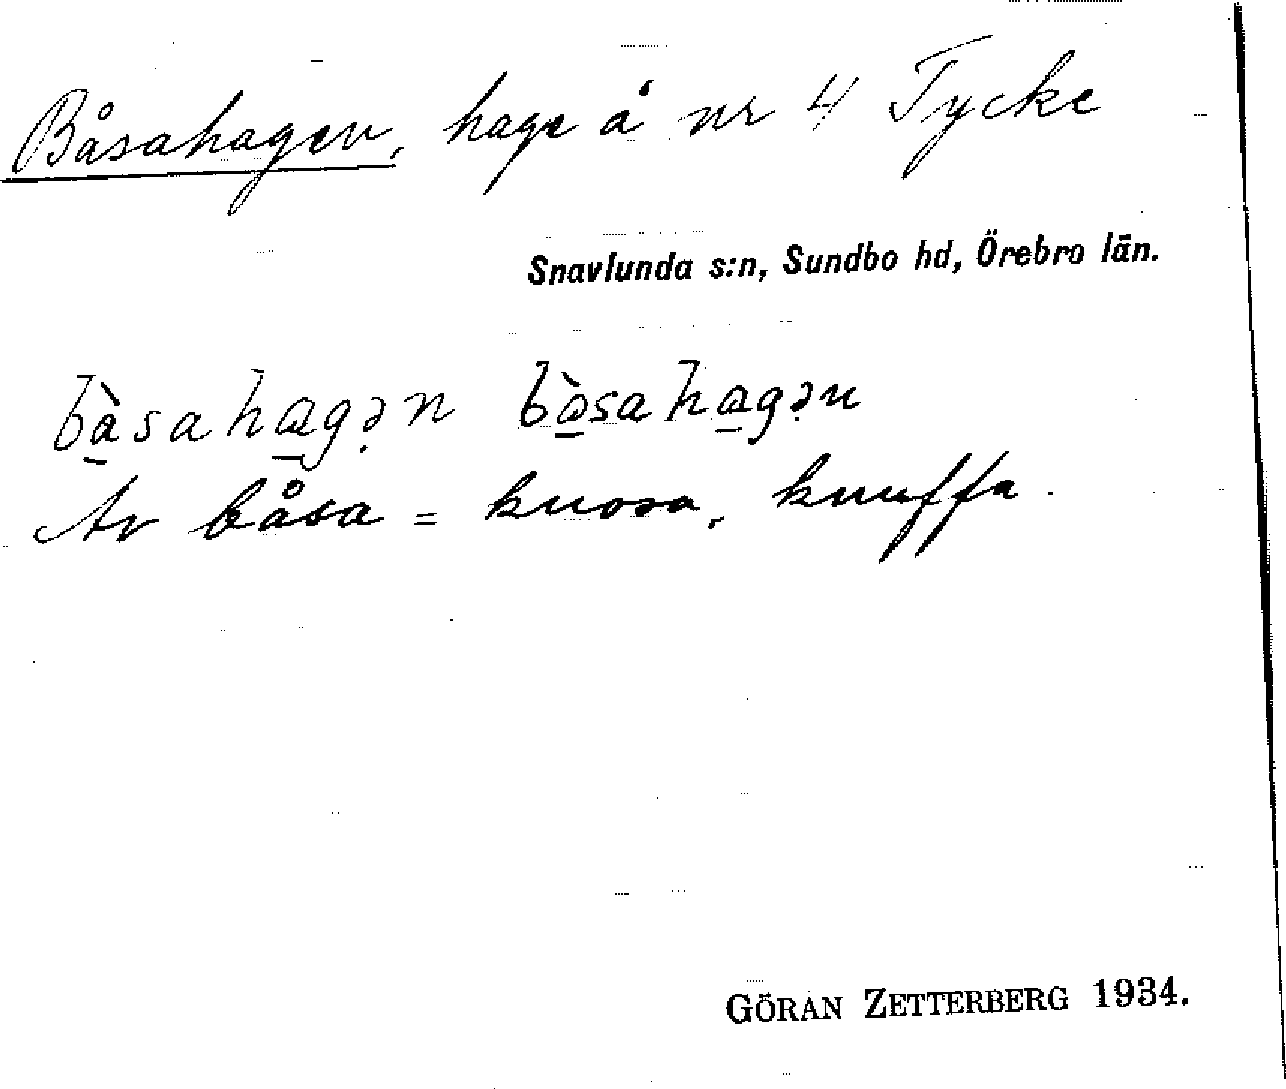 Båsahagen, hage å nr 4 Tycke
Snavlunda s:n, Sundbo hd, Örebro län.
bàsahagən bòsahagən
Av båsa = knosa, knuffa.
GÖRAN ZETTERBERG 1934.